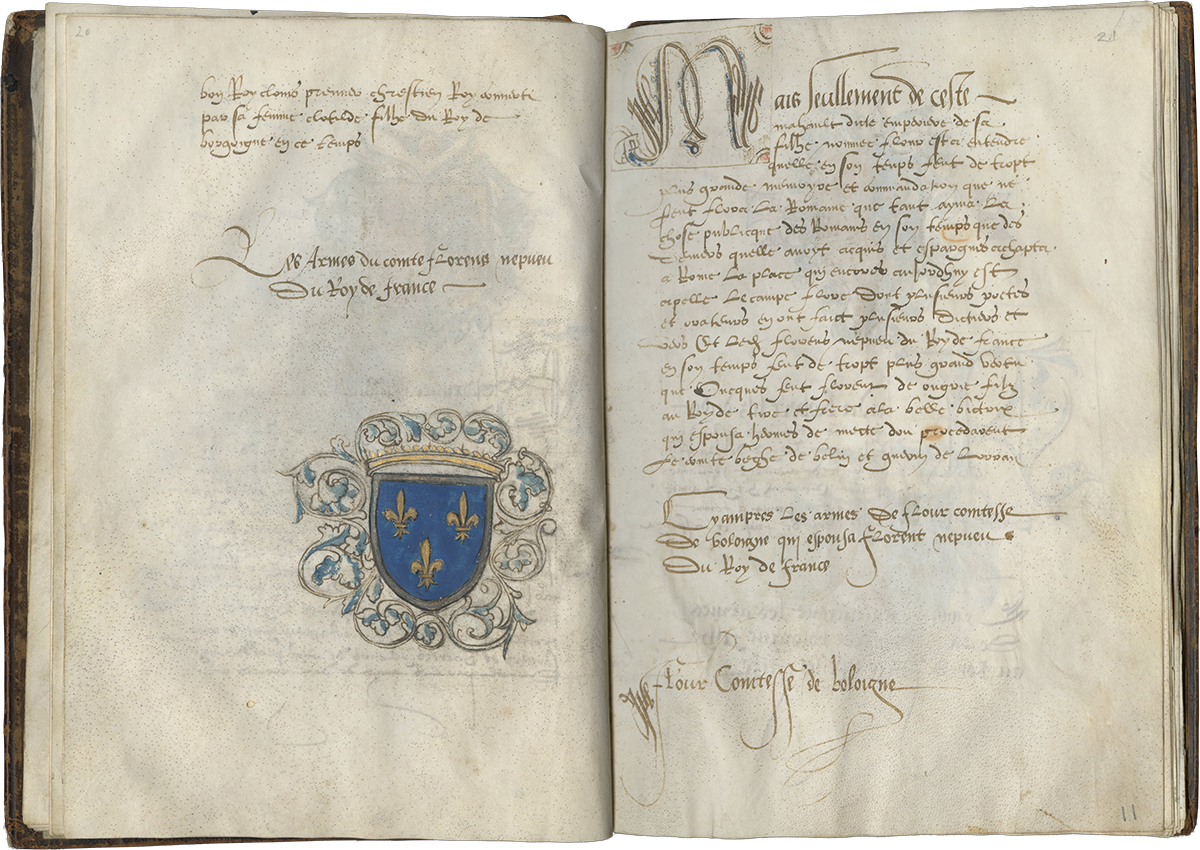 20
bon Roy clouis premier chrestien Roy conuerti
par sa femme clotilde filhe du Roy de
borgoigne en ce temps
Les Armes du comte florens nepueu
Du Roy de france
21
Mais seullement de ceste
mahault dicte empeireve de sa
filhe nommee flour est a entendre
quelle en son temps feut de tropt
plus grande memoyre et commandation que ne
feut flora La Romaine que tant ayma La
chose publicque des Romains en son temps que des
deniers quelle auoyt acquis et espargnes achapta
a Rome La place qui encores aujordhuy est
apelle Le campe flore Dont plusieurs poetes
et orateurs en ont faict plusieurs dictiers et
vers Et Ledt florens nepueu du Roy de france
en son temps feut de tropt plus grand vertu
que Oncques feut florent de ongrie filz
au Roy de et frere a la belle
qui espousa heruies de mectz dou procedarent
Le comte beghe de belin et guerin de Lorran
Cy ampres Les armes De flour comtesse
De boloigne qui espousa florent nepueu
Du Roy de france
flour Comtesse de boloigne
11